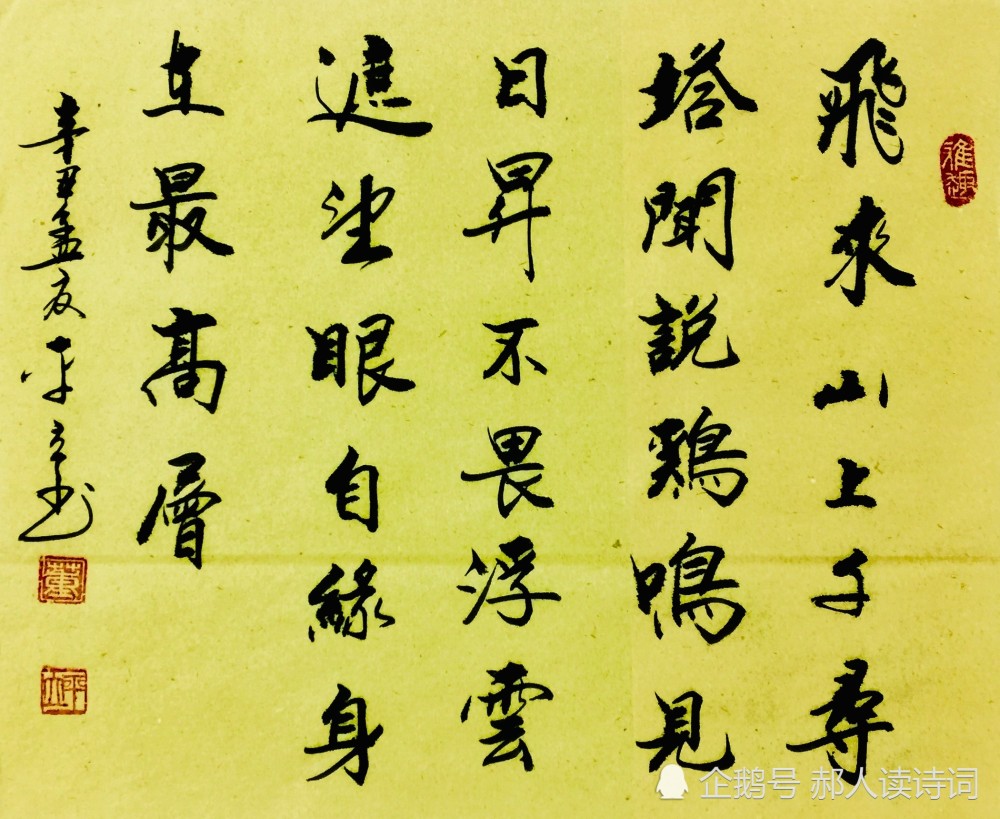 雅趣
飛來山上千尋
塔聞說鷄鳴見
日昇不畏浮雲
遮望眼自緣身
在最高層
辛丑孟夏平立書
董
企鹅号 郝人读诗词